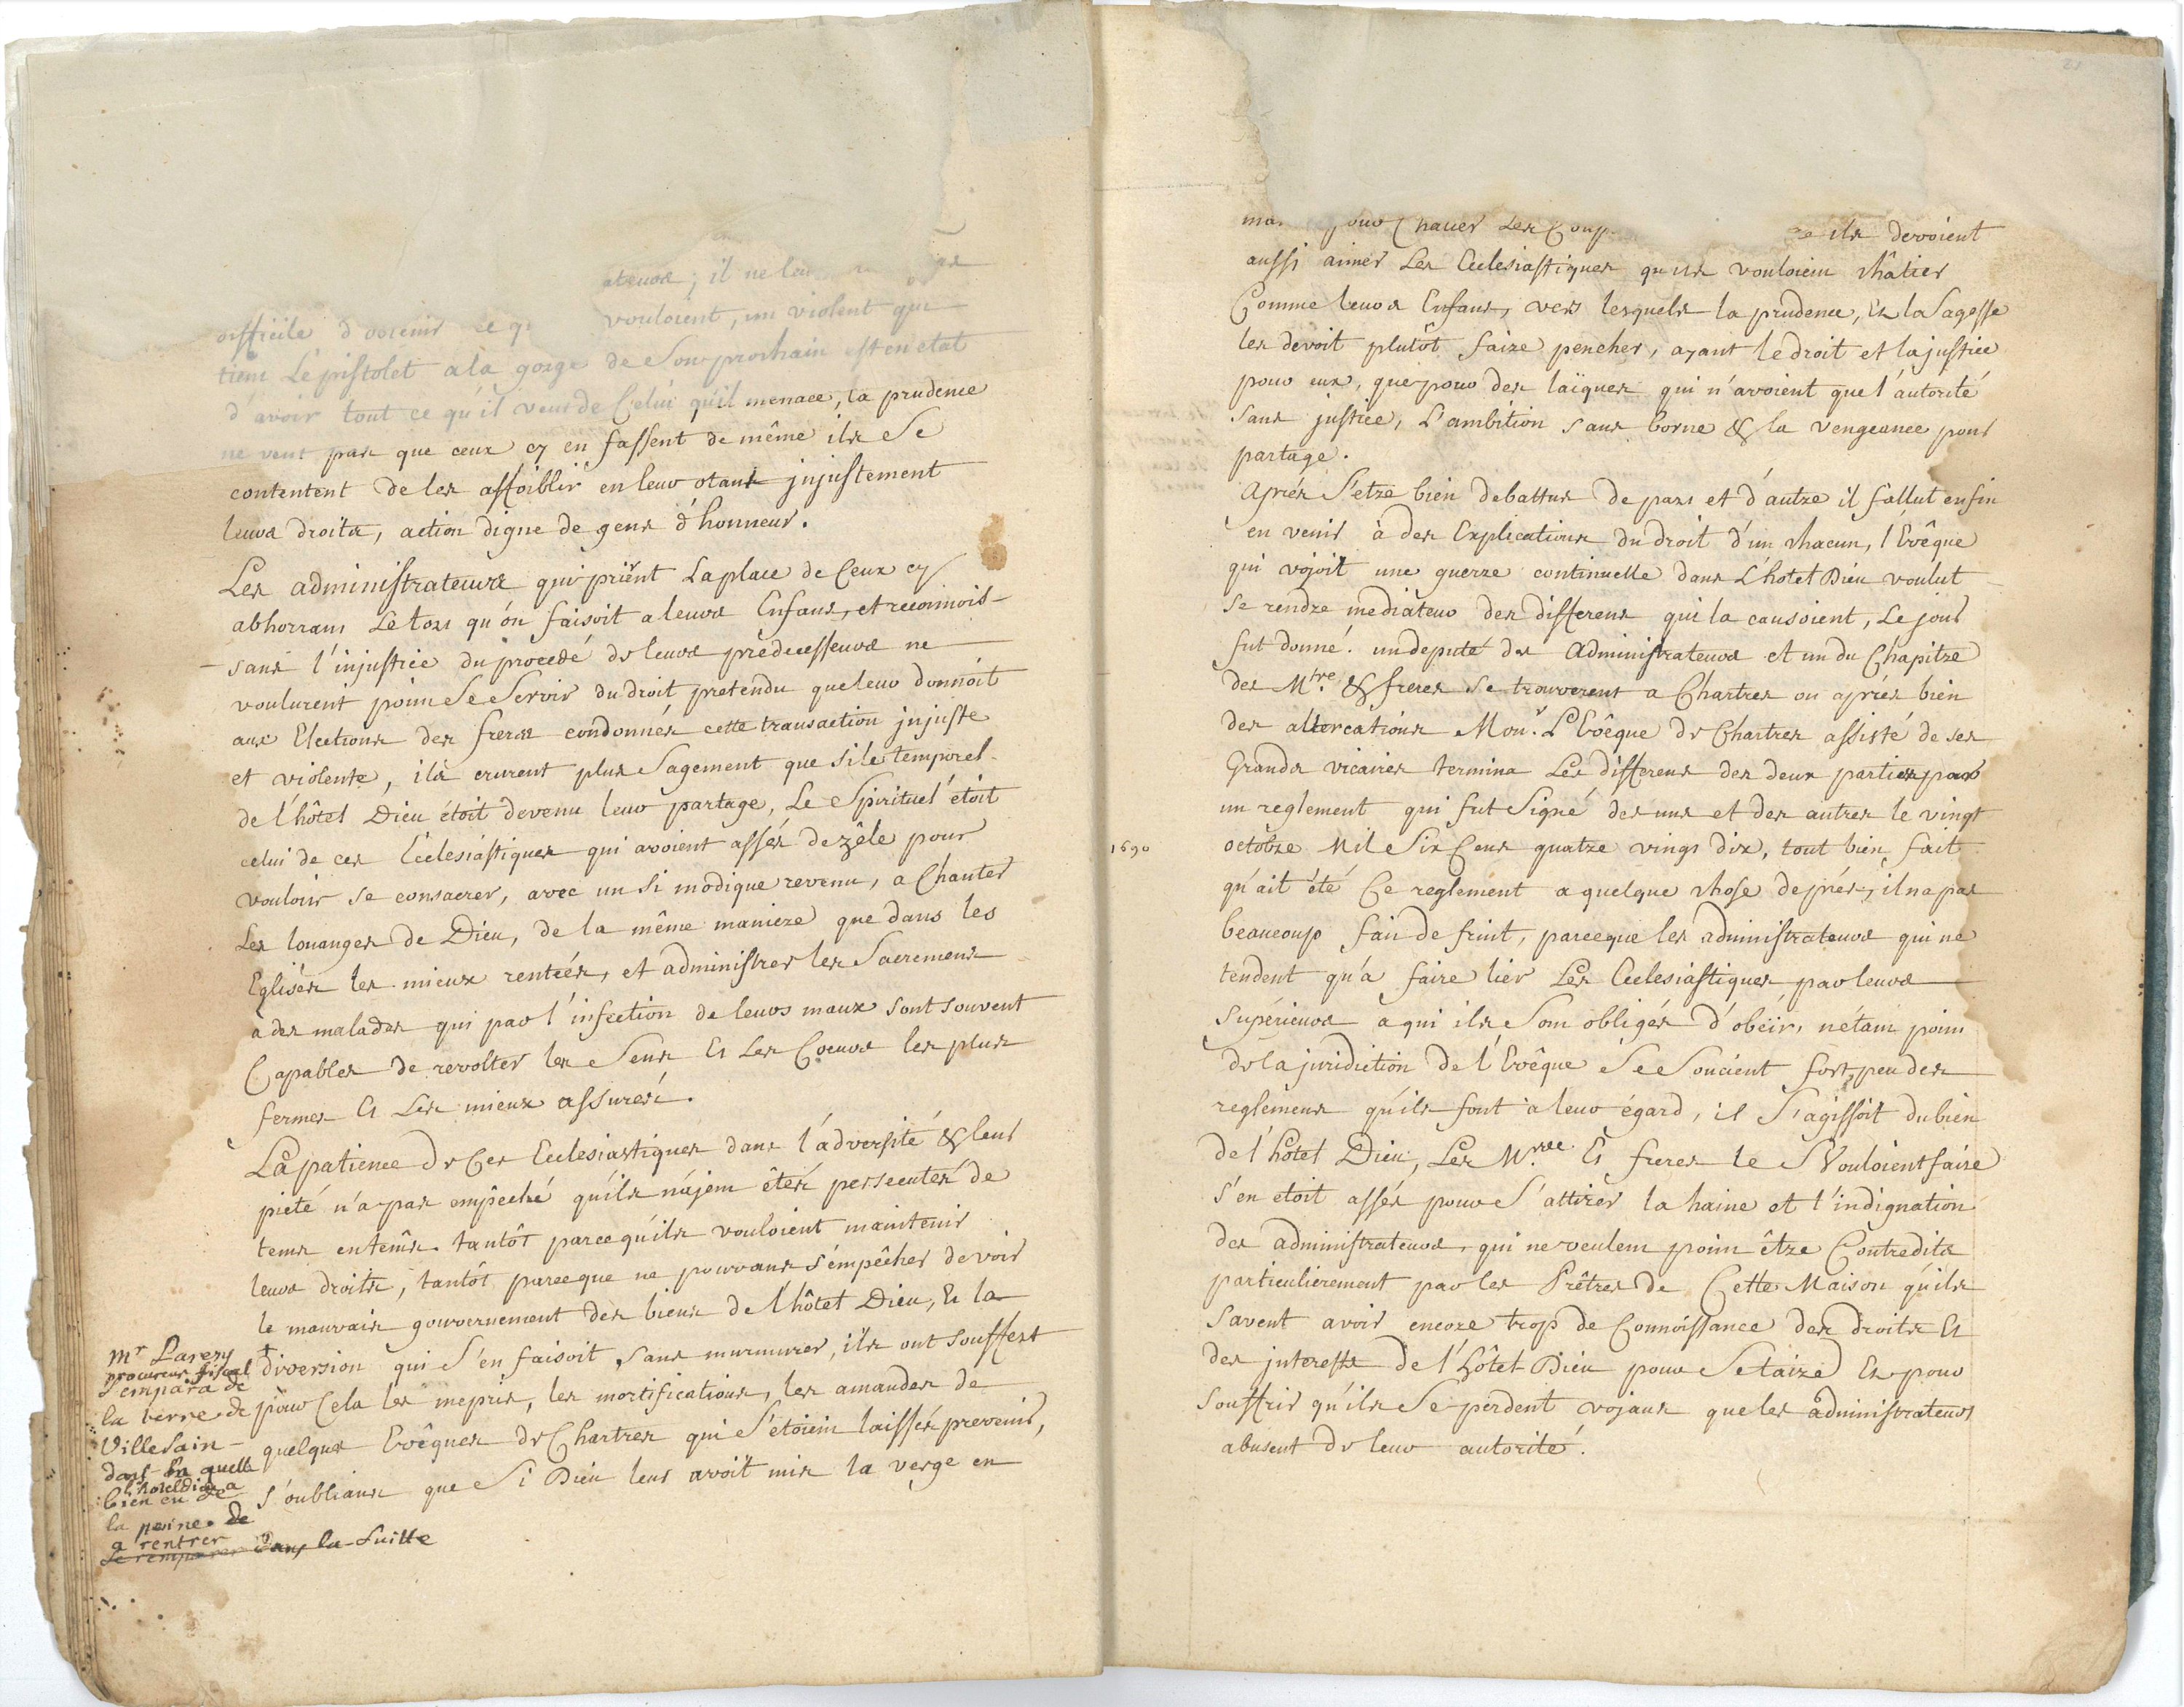 ateurs; il ne leu
difficile d'obtenir ce q vouloient, un violent qui
tient Le pistolet a la gorge de Son prochain est en etat
d'avoir tout ce qu'il veut de Celui qu'il menace, la prudence
ne veut pas que ceux cy en fassent de même ils Se
contentent de les affoiblir en leur otant jnjustement
leurs droits, action digne de gens d'honneur.
Les administrateurs qui prirent La place de Ceux cy
abhorrans Le tort qu'on faisoit a leurs Enfans, et reconnois-
sans l'injustice du procedé de leurs prédecesseurs ne
voulurent point Se Servir du droit pretendu que leur donnoit
aux Elections des freres condonnés cette transaction jnjuste
et violente, ils crurent plus Sagement que si le temporel
de l'hôtel Dieu étoit devenu leur partage, Le Spirituel étoit
celui de ces Ecclesiastiques qui avoient assés de zêle pour
vouloir se consacrer, avec un si modique revenu, a Chanter
Les louanges de Dieu, de la même maniere que dans les
Eglises les mieux rentées, et administrer les Sacremens
a des malades qui par l'infection de leurs maux sont souvent
Capables de revolter les Sens Et Les Coeurs les plus
fermes Et Les mieux assurés.
La patience de Ces Ecclesiastiques dans l'adversité & leur
pieté n'a pas empêché qu'ils n'ajent êtés persecutés de
tems en tems. tantôt parcequ'ils vouloient maintenir
leurs droits, tantôt parceque ne pouvans s'empêcher de voir
le mauvais gouvernement des biens de l'hôtel Dieu, Et la
+ diversion qui S'en faisoit, Sans murmurer, ils ont souffert
pour Cela les mepris, les mortifications, les amandes de
quelques Evêques de Chartres qui S'étoient laissés prevenir,
s'oublians que Si Dieu leur avoit mis la verge en
Mr Parezy
procureur fiscal
S'empara de
la terre de
Villesain-
dans la quelle
l'hoteldieu a
bien eu de
la peine de
a rentrer
Se remparer dans la Suitte
ma pour Chatier Les Coup ils devoient
aussi aimer Les Ecclesiastiques qu'ils vouloient châtier
Comme leurs Enfans, vers lesquels la prudence, Et la Sagesse
les devoit plutôt faire pencher, ayant le droit et la justice
pour eux, que pour des laïques qui n'avoient que l'autorité
Sans justice, L'ambition sans borne & la vengeance pour
partage.
Aprés S'etre bien debattus de part et d'autre il fallut enfin
en venir à des Explications du droit d'un chacun, l'Evêque
qui vojoit une guerre continuelle dans L'hotel Dieu voulut
Se rendre mediateur des differens qui la causoient, Le jour
fut donné. un deputé des Administrateurs et un du Chapitre
des Mtre & freres Se trouverent a Chartres ou aprés bien
des altercations Monr. L'Evêque de Chartres assisté de ses
Grands vicaires termina Les differens des deux parties par
un reglement qui fut Signé des uns et des autres le vingt
1690
octobre Mil Six Cens quatre vingt dix, tout bien fait
qu'ait été Ce reglement a quelque chose de prés, il n'a pas
beaucoup fait de fruit, parceque les administrateurs qui ne
tendent qu'a faire lier Les Ecclesiastiques par leurs
Supérieurs a qui ils Sont obligés d'obéir, n'étant point
de la juridiction de l'Evêque Se Soucient fort peu des
reglemens qu'ils font a leur égard, il S'agissoit du bien
de l'hôtel Dieu, Les Mtre. Et freres le Vouloient faire
S'en etoit assés pour S'attirer la haine et l'indignation
des administrateurs, qui ne veulent point être Contredits
particulierement par les Prêtres de Cette Maison qu'ils
Savent avoir encore trop de Connoissance des droits Et
des jnterests de l'hôtel Dieu pour Se taire Et pour
Souffrir qu'ils Se perdent vojans que les administrateurs
abusent de leur autorité.